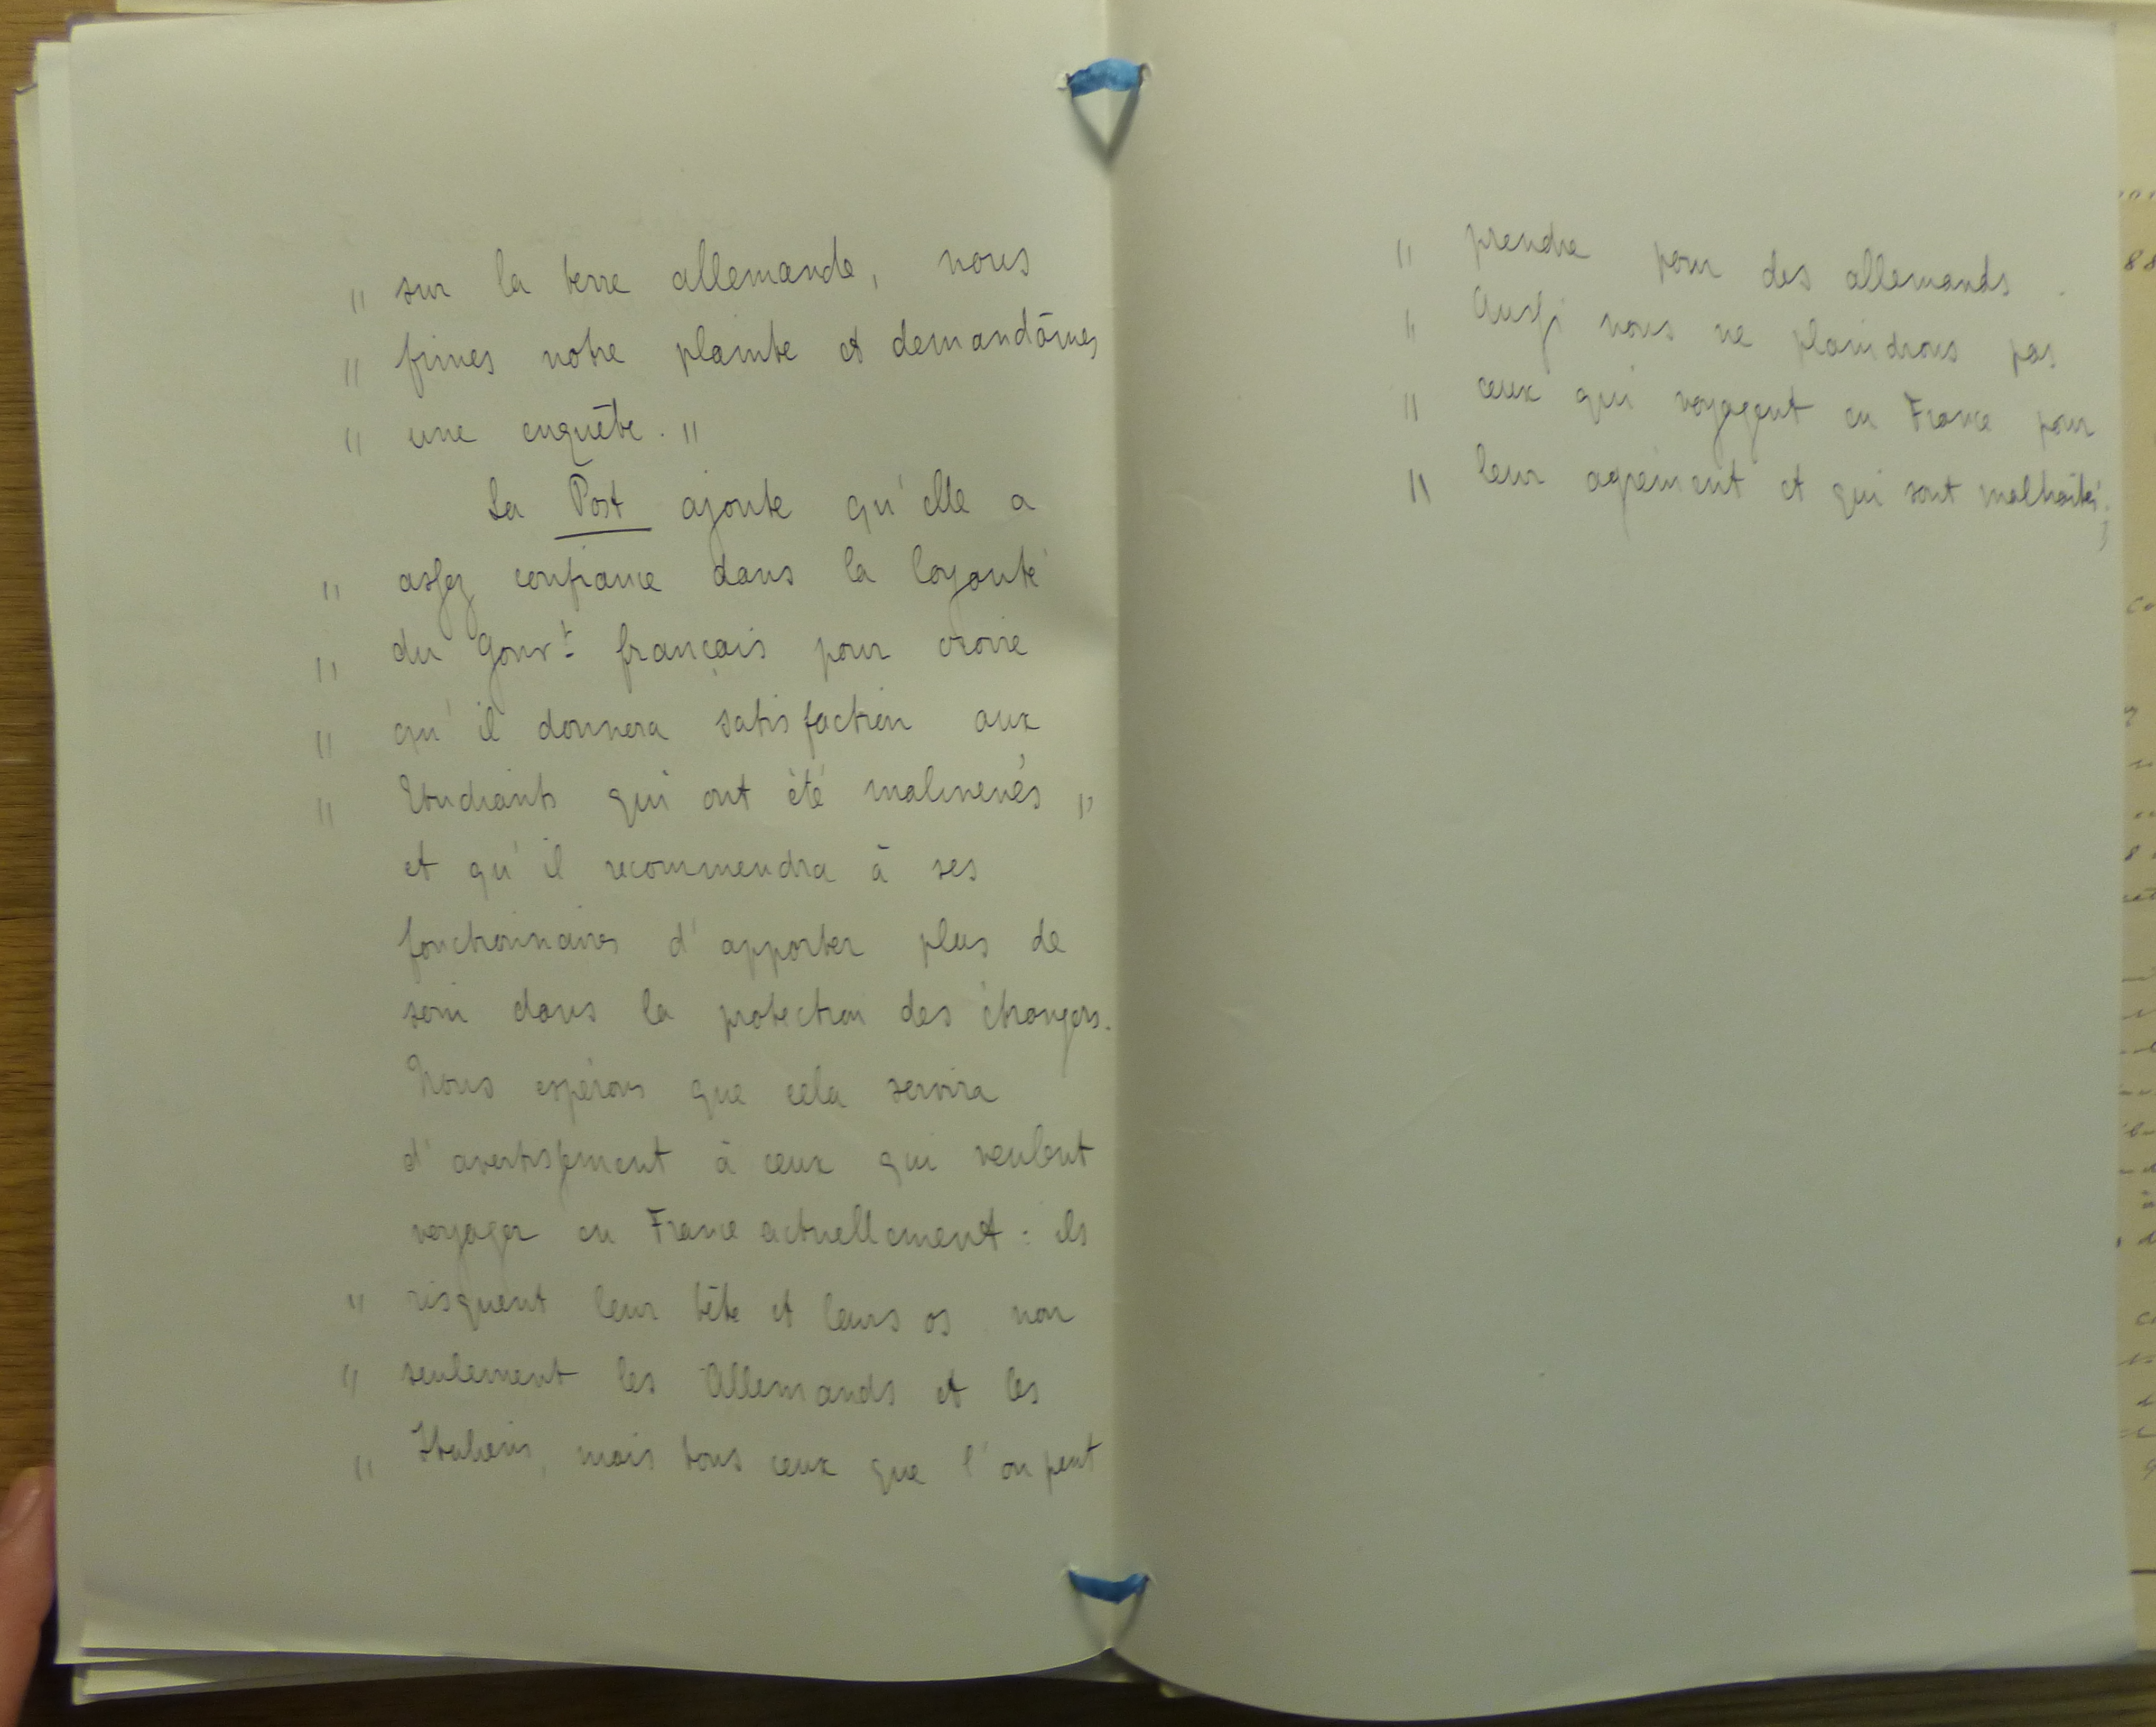 " sur la terre allemande, nous
" fimes notre plainte et demandâmes
" une enquête. "
La Post ajoute qu'elle a
" assez confiance dans la loyauté
" du Gouvt français pour croire
" qu'il donnera satisfaction aux
" Etudiants qui ont été malmenés "
et qu'il recommendra à ses
fonctionnaires d'apporter plus de
soin dans la protection des étrangers.
Nous espérons que cela servira
d'avertissement à ceux qui veulent
voyager en France actuellement : ils
" risquent leur tête et leurs os non
" seulement les Allemands et les
" Italiens, mais tous ceux que l'on peut
" prendre pour des allemands.
" Aussi nous ne plaindrons pas
" ceux qui voyagent en France pour
" leur agrément et qui sont maltraités "